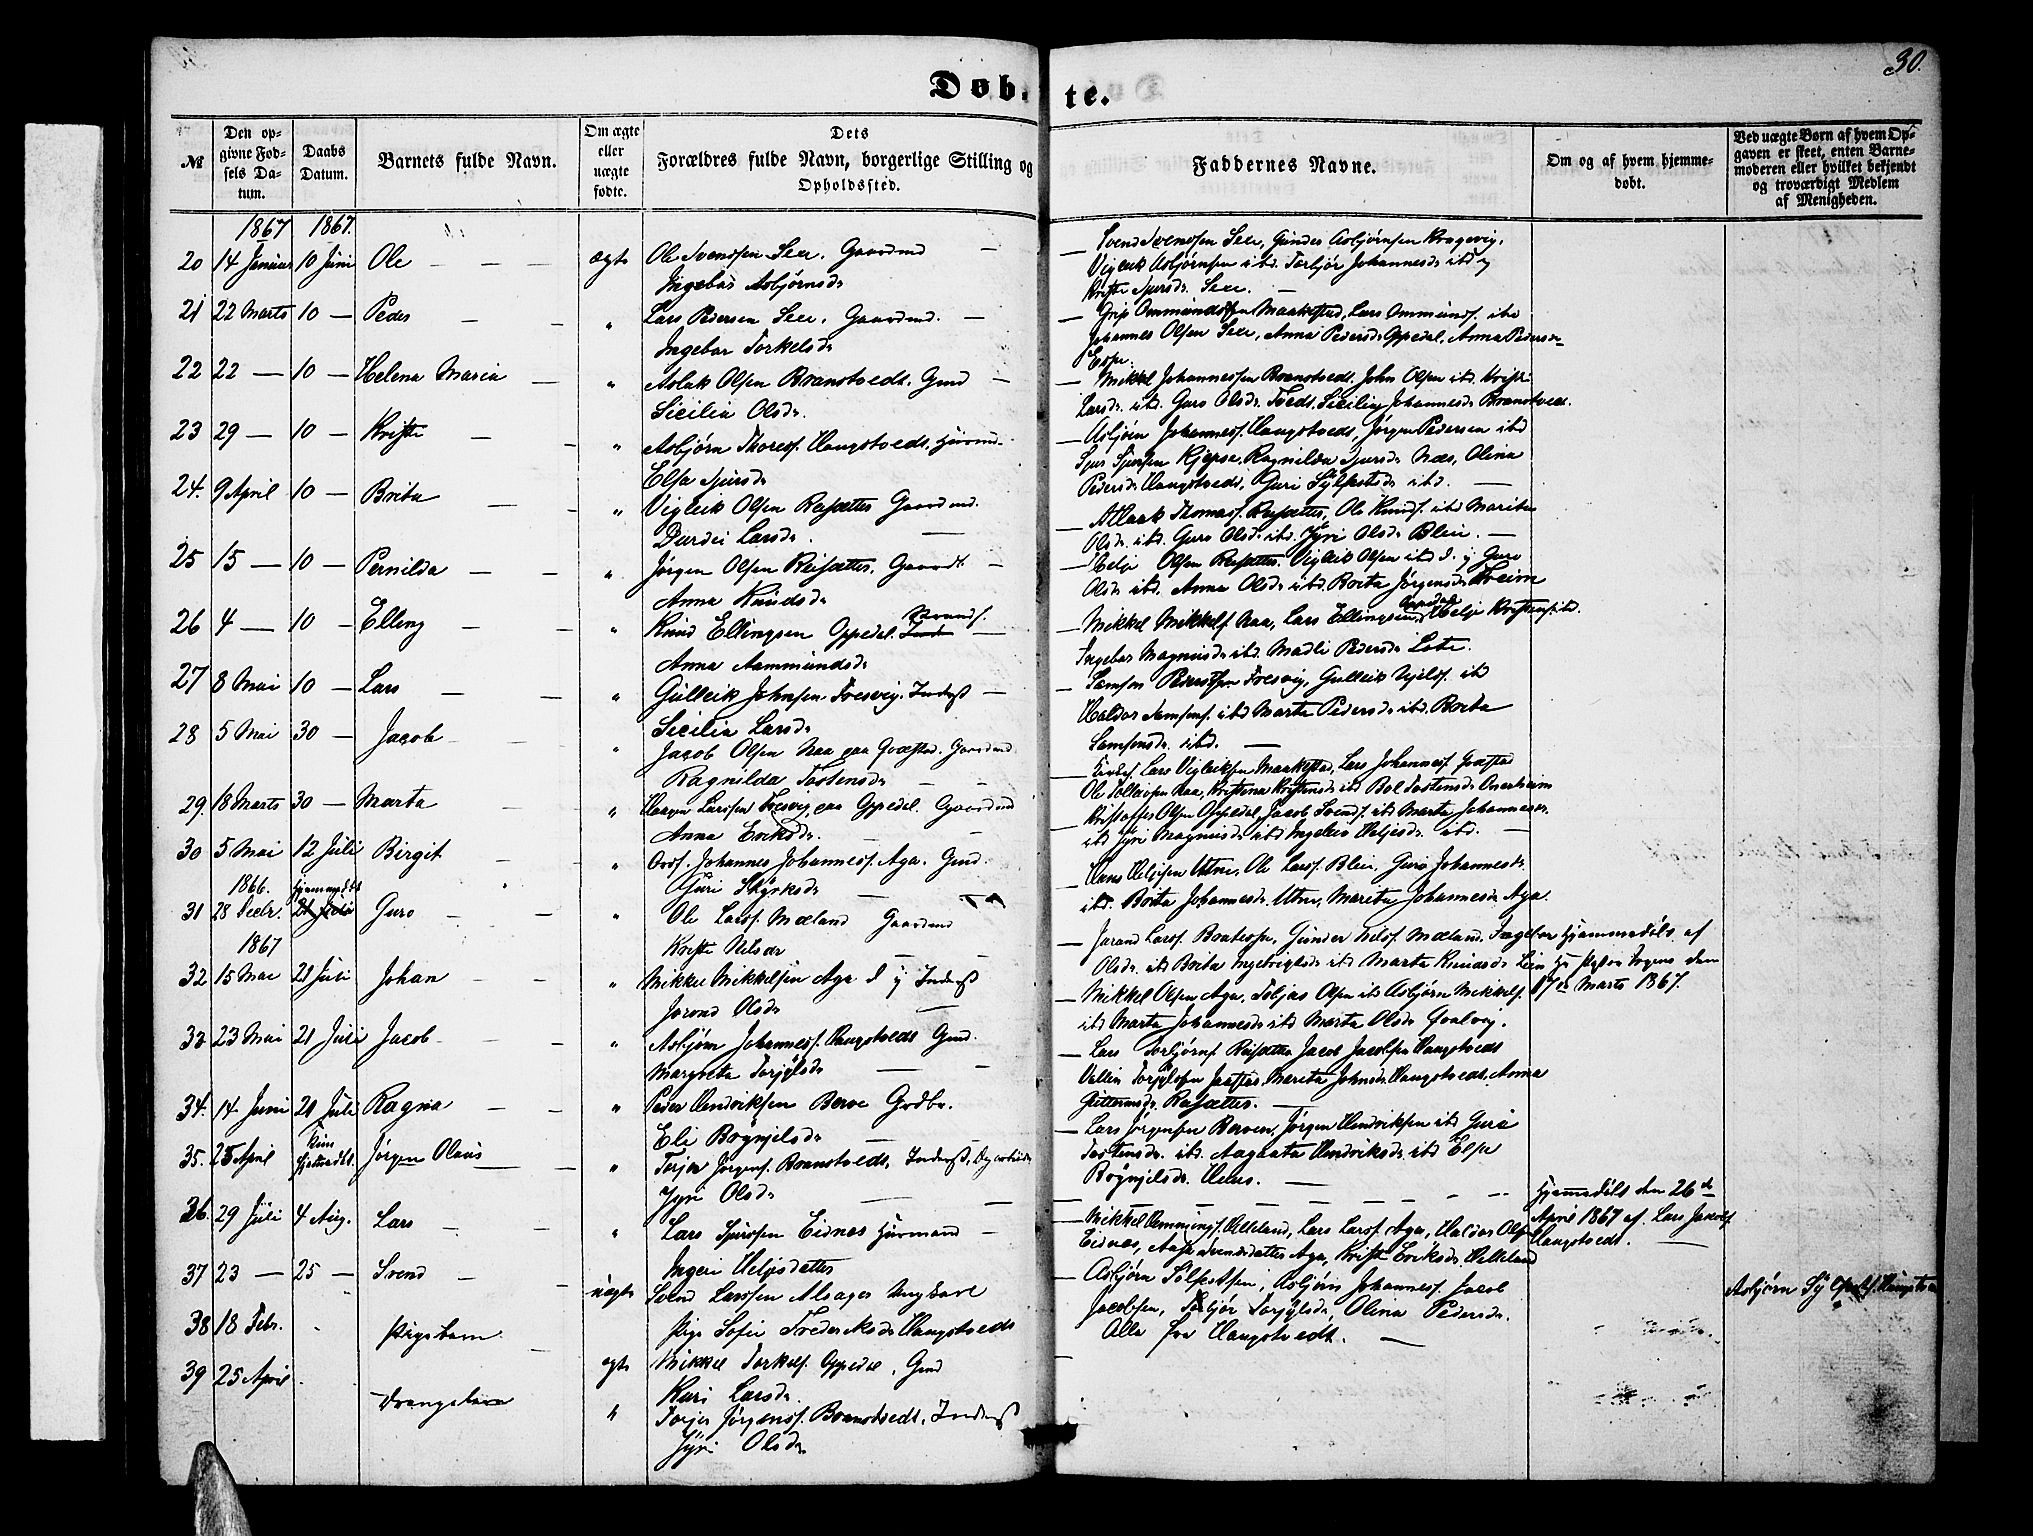 30.
Døb- te.
№
Den op-
givne Fød-
sels Da-
tum.
Daabs
Datum.
Barnets fulde Navn.
Om ægte
eller
uægte
fødte.
Dets
Forældres fulde Navn, borgerlige Stilling og
Opholdssted.
Faddernes Navne.
Om og af hvem hjemme-
døbt.
Ved uægte Børn af hvem Op-
gaven er skeet, enten Barne-
moderen eller hvilket bekjendt
og troværdigt Medlem
af Menigheden.
1867 1867.
20 14 Januar 10 Juni Ole — — — ægte Ole Svendsen Sexe. Gaardmd —
Ingebor Asbjørnsdr
— Svend Svendsen Sexe, Gunder Asbjørnsen Kragevig,
Vigleik Asbjørnsen ibd. Torbjør Johannesdr ibd og
Kristi Sjursdr. Sexe. —
21 22 Marts 10 — Peder — — " Lars Pedersen Sexe. Gaardmd. —
Ingebor Torkelsdr
— Grip Ommundsen Maakestad, Lars Ommundsf. ibd
Johannes Olsen Sexe, Anna Pedersdr Oppedal, Anna Pedersdr
Espe.
22 22 — 10 — Helena Maria — " Aslak Olsen Branstvedt. Gmd —
Sicilia Olsdr.
— Mikkel Johannessen Branstvedt. John Olsen ibd. Kristi
Larsdr. ibd. Guro Olsdr. Tvedt. Sicilia Johannesdr Branstvedt.
23 29 — 10 — Kristi — — " Asbjørn Thoresf. Haugstvedt. Huusmd. —
Elsa Sjursdr
— Asbjørn Johannesf. Haugstvedt, Jørgen Pedersen ibd
Sjur Sjursen Kjepso, Ragnilda Sjursdr Næs, Olina
Pedersdr Haugstvedt, Guri Sylfestsdr ibd. —
24. 9 April 10 — Brita — — " Vigleik Olsen Reisæter Gaardmd.
Durdei Larsdr. —
— Aslaak Thomasf. Reisæter, Ole Knudsf. ibd Marita
Olsdr. ibd. Guro Olsdr ibd. Jyri Olsdr Bleie. —
25 15 — 10 — Pernilda — — " Jørgen Olsen Reisæter. Gaardm. —
Anna Knudsdr
— Helje Olsen Reisæter. Vigleik Olsen ibd d. y Guro
Olsdr ibd. Anna Olsdr ibd. Brita Jørgensdr Freim
26 4 — 10 — Elling — — " Knud Ellingsen Oppedal. —
Anna Aammundsdr
— Mikkel Mikkelsf Naa, Lars Ellingsen Oppedal Helje Kristensf. ibd.
Ingebor Magnusdr ibd. Madli Pedersdr Lote.
27 8 Mai 10 — Lars — — " Gulleik Johnsen Tresvig. Inderst —
Sicilia Larsdr
— Samson Pedersen Tresvig, Gulleik Njelsf. ibd
Haldor Samsonsf. ibd Marta Pedersdr ibd. Brita
Samsonsdr. ibd. —
28 5 Mai 30 — Jacob — — " Jacob Olsen Naa paa Qvæstad. Gaardmd
Ragnilda Tostensdr — —
— Lars Vigleiksen Maakestad, Lars Johannesf.
Ole Tollevsen Naa, Kristina Kristensdr ibd Bol Tostensdr
29. 18 Marts 30 — Marta — " Haagen Larssen Tresvig, paa Oppedal. Gaardmd
Anna Eriksdr. — —
Kristoffer Olsen Oppedal, Jacob Svendsf. ibd Marta Johannesdr.
ibd Jyri Magnusdr ibd Ingeleiv Heljesdr. ibd. —
30 5 Mai 12 Juli Birgit — — " Johannes Johannesf. Aga. Gmd.
Guri Styrksdr —
— Hans Heljesen Utne, Ole Larsf. Bleie, Guro Johannesdr.
ibd. Brita Johannesdr. Utne, Marita Johannesdr Aga.
1866. Hjemmedøbt
31 28 Decbr. 21 Juli Guro — — " Ole Larsf. Mæland Gaardmd
Kristi Nelsdr — —
— Jarand Larsf. Bratespe, Gunder Nilsf. Mæland. Ingebor
Olsdr. ibd Brita Ingebrigtsdr ibd Marta Knudsdr Lein
Hjemmedøbt af
Hr Pastor den
17de Marts 1867.
1867
32 15 Mai 21 Juli Johan — — " Mikkel Mikkelsen Aga d y Inderst
Jorond Olsdr —
— Mikkel Olsen Aga, Tobjas Olsen ibd Asbjørn Mikkelsf.
ibd Marta Johannesdr ibd Marta Olsdr Qvalvig.
33 23 Mai 21 Juli Jacob — — " Asbjørn Johannesf. Haugstvedt Gmd.
Margreta Torjylsdr — —
— Lars Torbjørnf. Reisæter Jacob Jacobsen Haugstvedt
Torjylsen Jaastad, Marita Johnsdr Haugstvedt. Anna
Guttormsdr. Reisæter. —
34. 14 Juni 21 Juli Ragna — — " Peder Hendriksen Berve Grdbr.
Eli Bøgnjelsdr —
— Lars Jørgensen Berven, Jørgen Hendriksen ibd Guro
Tostensdr. ibd. Aagaata Hendriksdr. ibd Elsa
Bøgnjelsdr. Helus. —
35. 25 April kun hjemmedøbt. Jørgen Olaus — " Torjer Jørgensf. Branstvedt, Inderst, Dagarbeider
Jyri Olsdr — —
— — — — — — —
Hjemmedøbt den 26de
April 1867 af. Lars Jacobsf.
Haugstvedt. —
36. 29 Juli 4 Aug. Lars — — " Lars Sjursen Eidnes Huusmand —
Ingeri Heljesdatter
— Mikkel Hemmingsf. Helleland, Lars Larsf. Aga, Haldor Olsen
Eidnes, Aasa Svendsdatter Aga, Kristi Eriksdr. Helleland
37 23 — 25 — Svend — — uægte Svend Larssen Alsager Ungkarl
Pige Sofie Frederiksdr Haugstvedt
— Asbjørn Sylfestsen, Asbjørn Johannesf. Jacob
Jacobsen, Torbjør Torjylsdr, Olina Pedersdr.
Alle fra Haugstvedt. —
Asbjørn Sylfestsf. Haugstve
38 18 Febr. . Pigebarn. — ægte Mikkel Torkelsf. Oppedal, Gmd
Kari Larsdr.
39 25 April . Drengebarn " Torjer Jørgensf. Branstvedt, Inderst
Jyri Olsdr